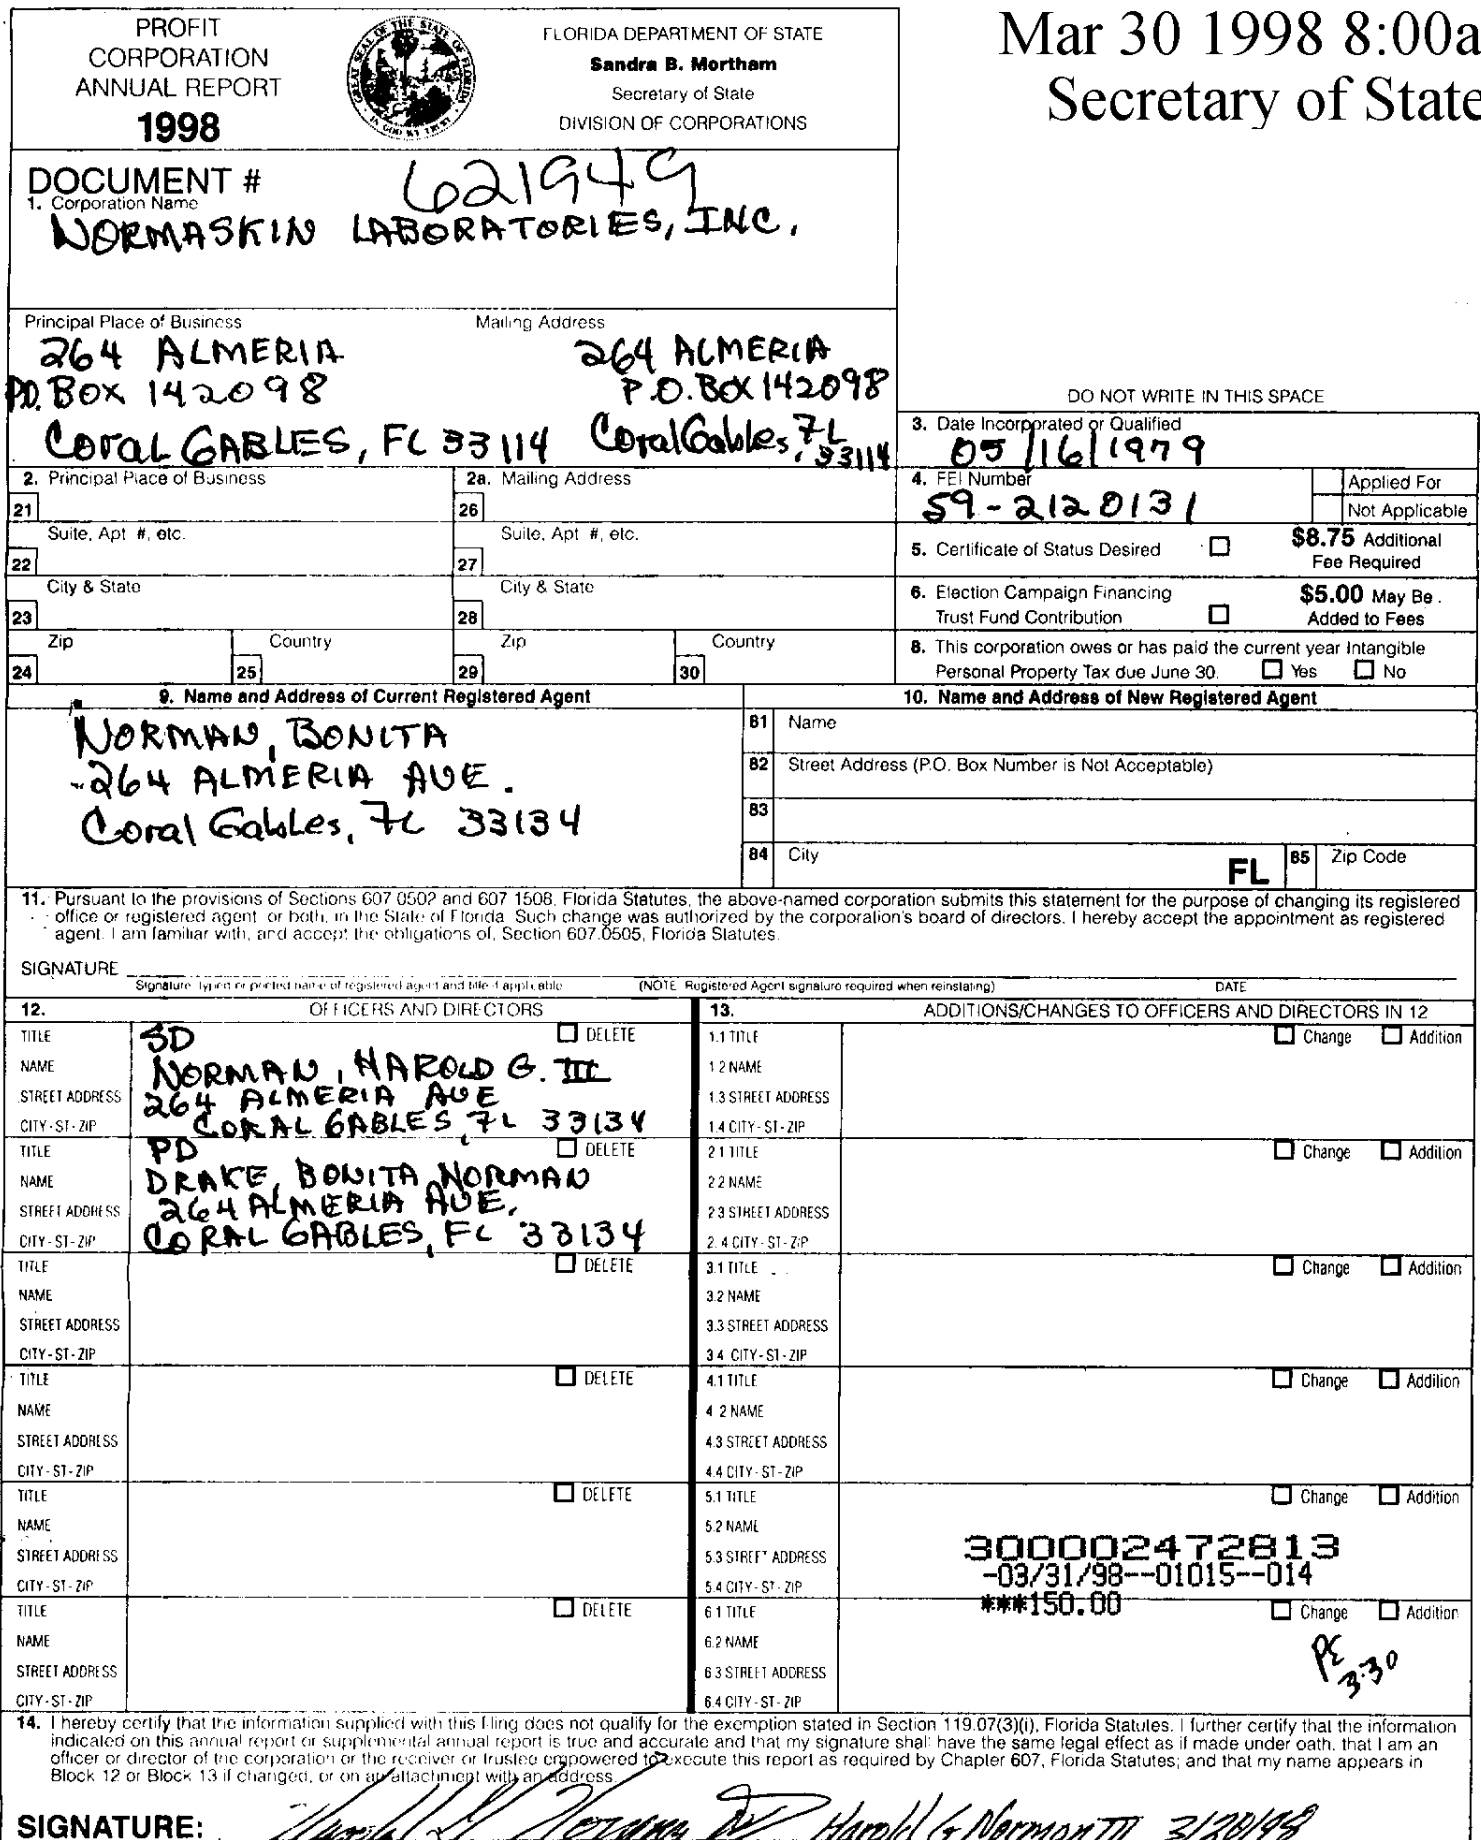 PROFIT
CORPORATION
ANNUAL REPORT
1998
FLORIDA DEPARTMENT OF STATE
Sandra B. Mortham
Secretary of State
DIVISION OF CORPORATIONS
Mar 30 1998 8:00a
Secretary of State
DOCUMENT # 621949
1. Corporation Name
NORMASKIN LABORATORIES, INC.
Principal Place of Business
264 ALMERIA
P.O. BOX 142098
CORAL GABLES, FL 33114
Mailing Address
264 ALMERIA
P.O. BOX 142098
Coral Gables, FL
33114
DO NOT WRITE IN THIS SPACE
3. Date Incorporated or Qualified
05/16/1979
2. Principal Place of Business
21
Suite, Apt #, etc.
22
City & State
23
Zip
24
Country
25
2a. Mailing Address
26
Suite, Apt #, etc.
27
City & State
28
Zip
29
Country
30
4. FEI Number
59-2120131
Applied For
Not Applicable
5. Certificate of Status Desired
$8.75 Additional
Fee Required
6. Election Campaign Financing
Trust Fund Contribution
$5.00 May Be
Added to Fees
8. This corporation owes or has paid the current year Intangible
Personal Property Tax due June 30. Yes No
9. Name and Address of Current Registered Agent
NORMAN, BONITA
264 ALMERIA AVE.
Coral Gables, FL 33134
10. Name and Address of New Registered Agent
81 Name
82 Street Address (P.O. Box Number is Not Acceptable)
83
84 City
FL
85 Zip Code
11. Pursuant to the provisions of Sections 607 0502 and 607 1508, Florida Statutes, the above-named corporation submits this statement for the purpose of changing its registered
office or registered agent or both, in the State of Florida Such change was authorized by the corporation's board of directors. I hereby accept the appointment as registered
agent. I am familiar with, and accept the obligations of, Section 607.0505, Florida Statutes.
SIGNATURE
Signature typed or printed name of registered agent and title if applicable
(NOTE Registered Agent signature required when reinstating)
DATE
12. OFFICERS AND DIRECTORS
TITLE SD DELETE
NAME NORMAN, HAROLD G. III
STREET ADDRESS 264 ALMERIA AVE
CITY-ST-ZIP CORAL GABLES, FL 33134
TITLE PD DELETE
NAME DRAKE, BONITA NORMAN
STREET ADDRESS 264 ALMERIA AVE.
CITY-ST-ZIP CORAL GABLES, FL 33134
TITLE DELETE
NAME
STREET ADDRESS
CITY-ST-ZIP
TITLE DELETE
NAME
STREET ADDRESS
CITY-ST-ZIP
TITLE DELETE
NAME
STREET ADDRESS
CITY-ST-ZIP
TITLE DELETE
NAME
STREET ADDRESS
CITY-ST-ZIP
13. ADDITIONS/CHANGES TO OFFICERS AND DIRECTORS IN 12
1.1 TITLE Change Addition
1 2 NAME
1.3 STREET ADDRESS
1.4 CITY-ST-ZIP
2 1 TITLE Change Addition
2 2 NAME
2 3 STREET ADDRESS
2. 4 CITY-ST-ZIP
3.1 TITLE Change Addition
3.2 NAME
3.3 STREET ADDRESS
3 4 CITY-ST-ZIP
4.1 TITLE Change Addition
4 2 NAME
4.3 STREET ADDRESS
4.4 CITY-ST-ZIP
5.1 TITLE Change Addition
5.2 NAME
5.3 STREET ADDRESS
5.4 CITY-ST-ZIP
300002472813
-03/31/98--01015--014
***150.00
6 1 TITLE Change Addition
6.2 NAME
6 3 STREET ADDRESS
6.4 CITY-ST-ZIP
PE
3-30
14. I hereby certify that the information supplied with this filing does not qualify for the exemption stated in Section 119.07(3)(i), Florida Statutes. I further certify that the information
indicated on this annual report or supplemental annual report is true and accurate and that my signature shall have the same legal effect as if made under oath, that I am an
officer or director of the corporation or the receiver or trustee empowered to execute this report as required by Chapter 607, Florida Statutes; and that my name appears in
Block 12 or Block 13 if changed, or on an attachment with an address.
SIGNATURE: Harold G Norman III Harold G Norman III 3/20/98